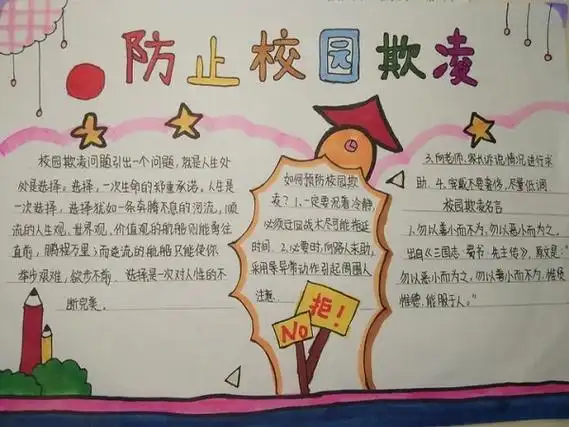 防止校园欺凌
校园欺凌问题引出一个问题，就是人生处
处是选择。选择，一次生命的郑重承诺。人生是
一次选择，选择犹如一条奔腾不息的河流，顺
流的人生观、世界观、价值观的船舶则能勇往
直前，鹏程万里；而逆流的船舶只能使你
举步艰难，欲步不前。选择是一次对人性的不
断完美。
如何预防校园欺
凌？1.一定要沉着冷静，
必须迂回战术尽可能拖延
时间。2.必要时，向路人求助，
采用异导带动作引起周围人
注意。
NO
拒！
3.向老师、家长诉说情况，进行求
助。4.穿戴不要奢侈，尽量低调
校园欺凌名言
1.勿以善小而不为，勿以恶小而为之。
出自《三国志·蜀书·先主传》，原文是："
勿以恶小而为之，勿以善小而不为，惟贤
惟德，能服于人。"